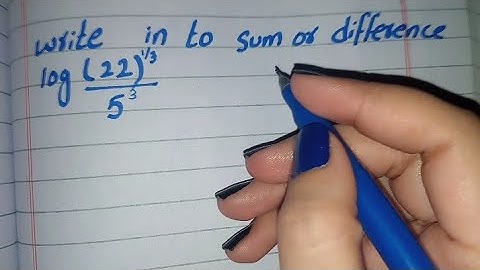 write in to sum or difference
log (22)^1/3 / 5^3